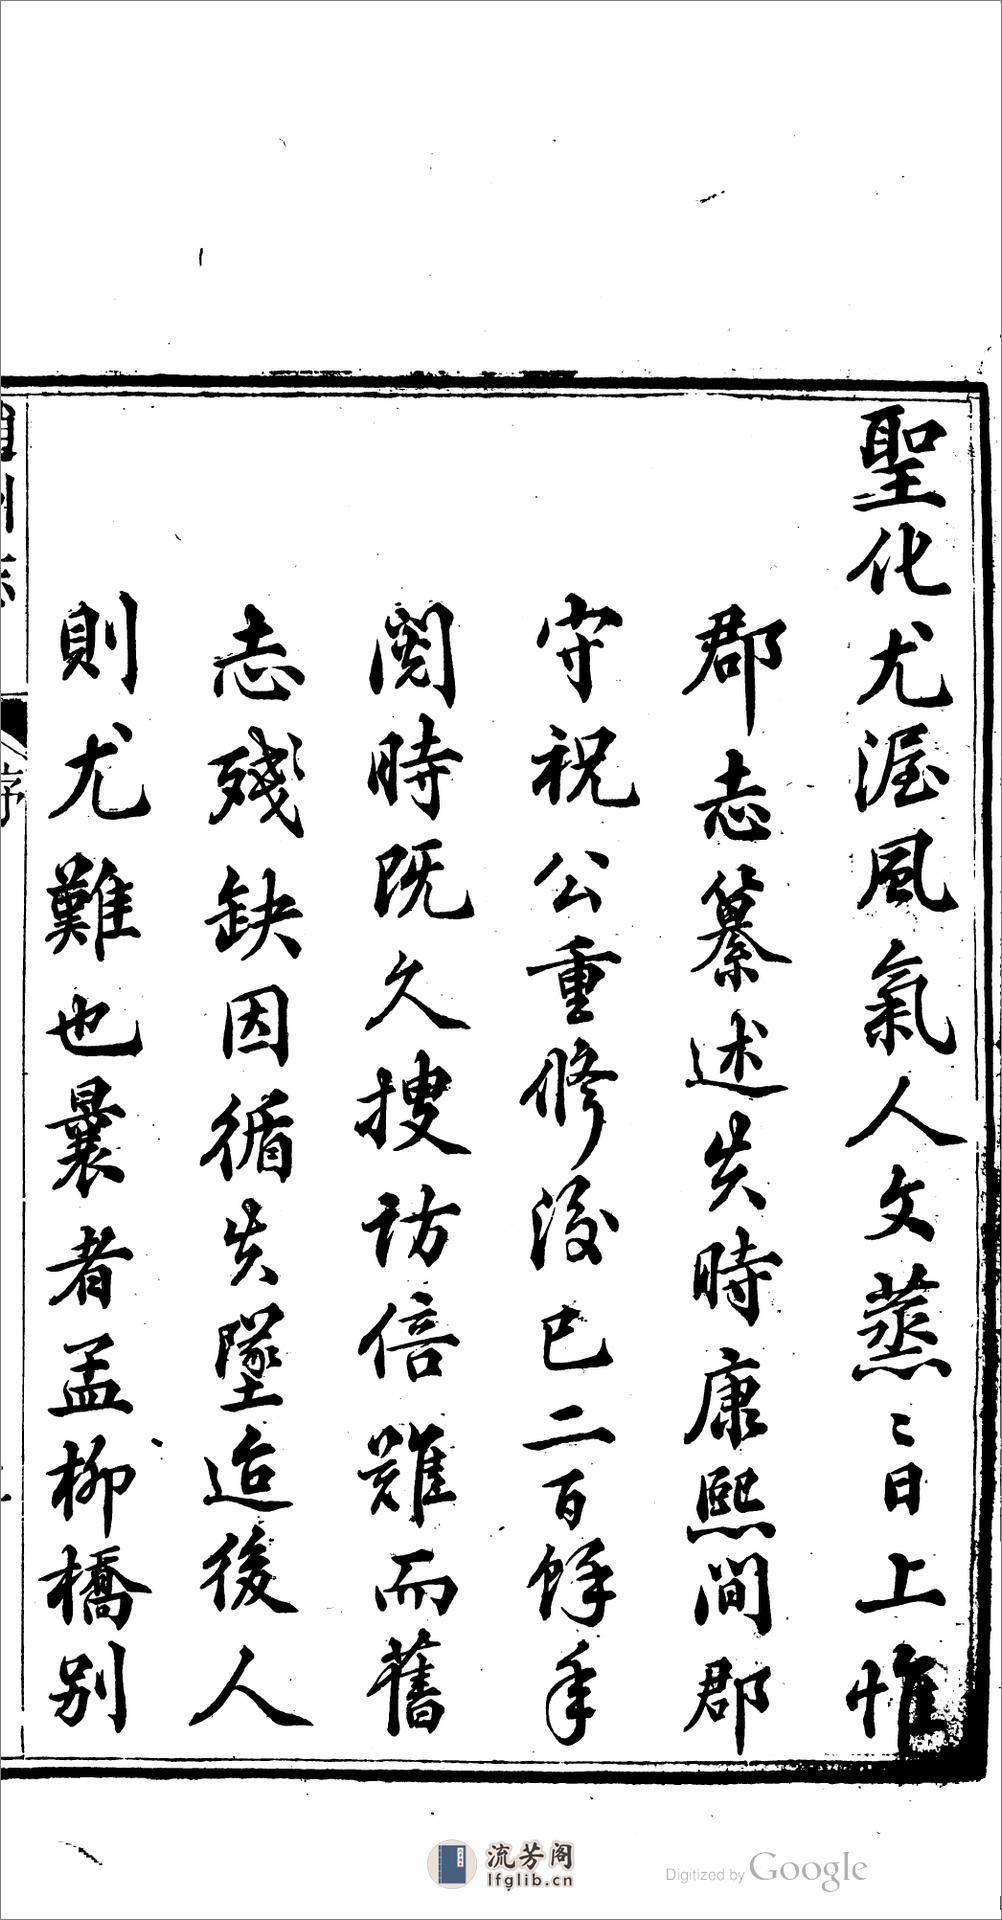 聖化尤渥風氣人文蒸〻日上惟
郡志纂述失時康熙間郡
守祝公重修後已二百餘年
閱時既久搜訪倍難而舊
志殘缺因循失墜迨後人
則尤難也曩者孟柳橋别
州志
序
流芳阁
lfglib.cn
Digitized by Google